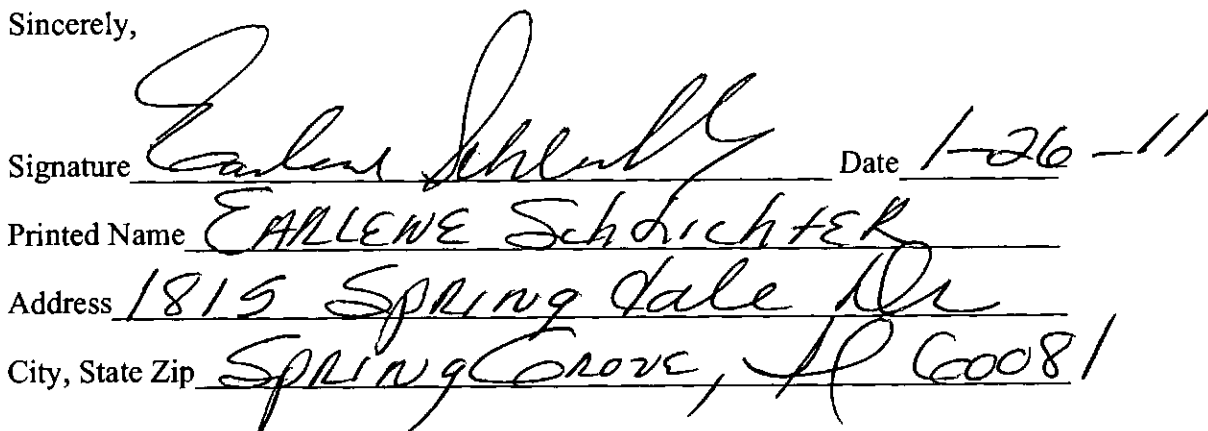 Sincerely,
Signature Earlene Date 1-26-11
Printed Name EARLENE SchLichtER
Address 1815 SPRING dale DR
City, State Zip SPRINg GROVE, Il 60081